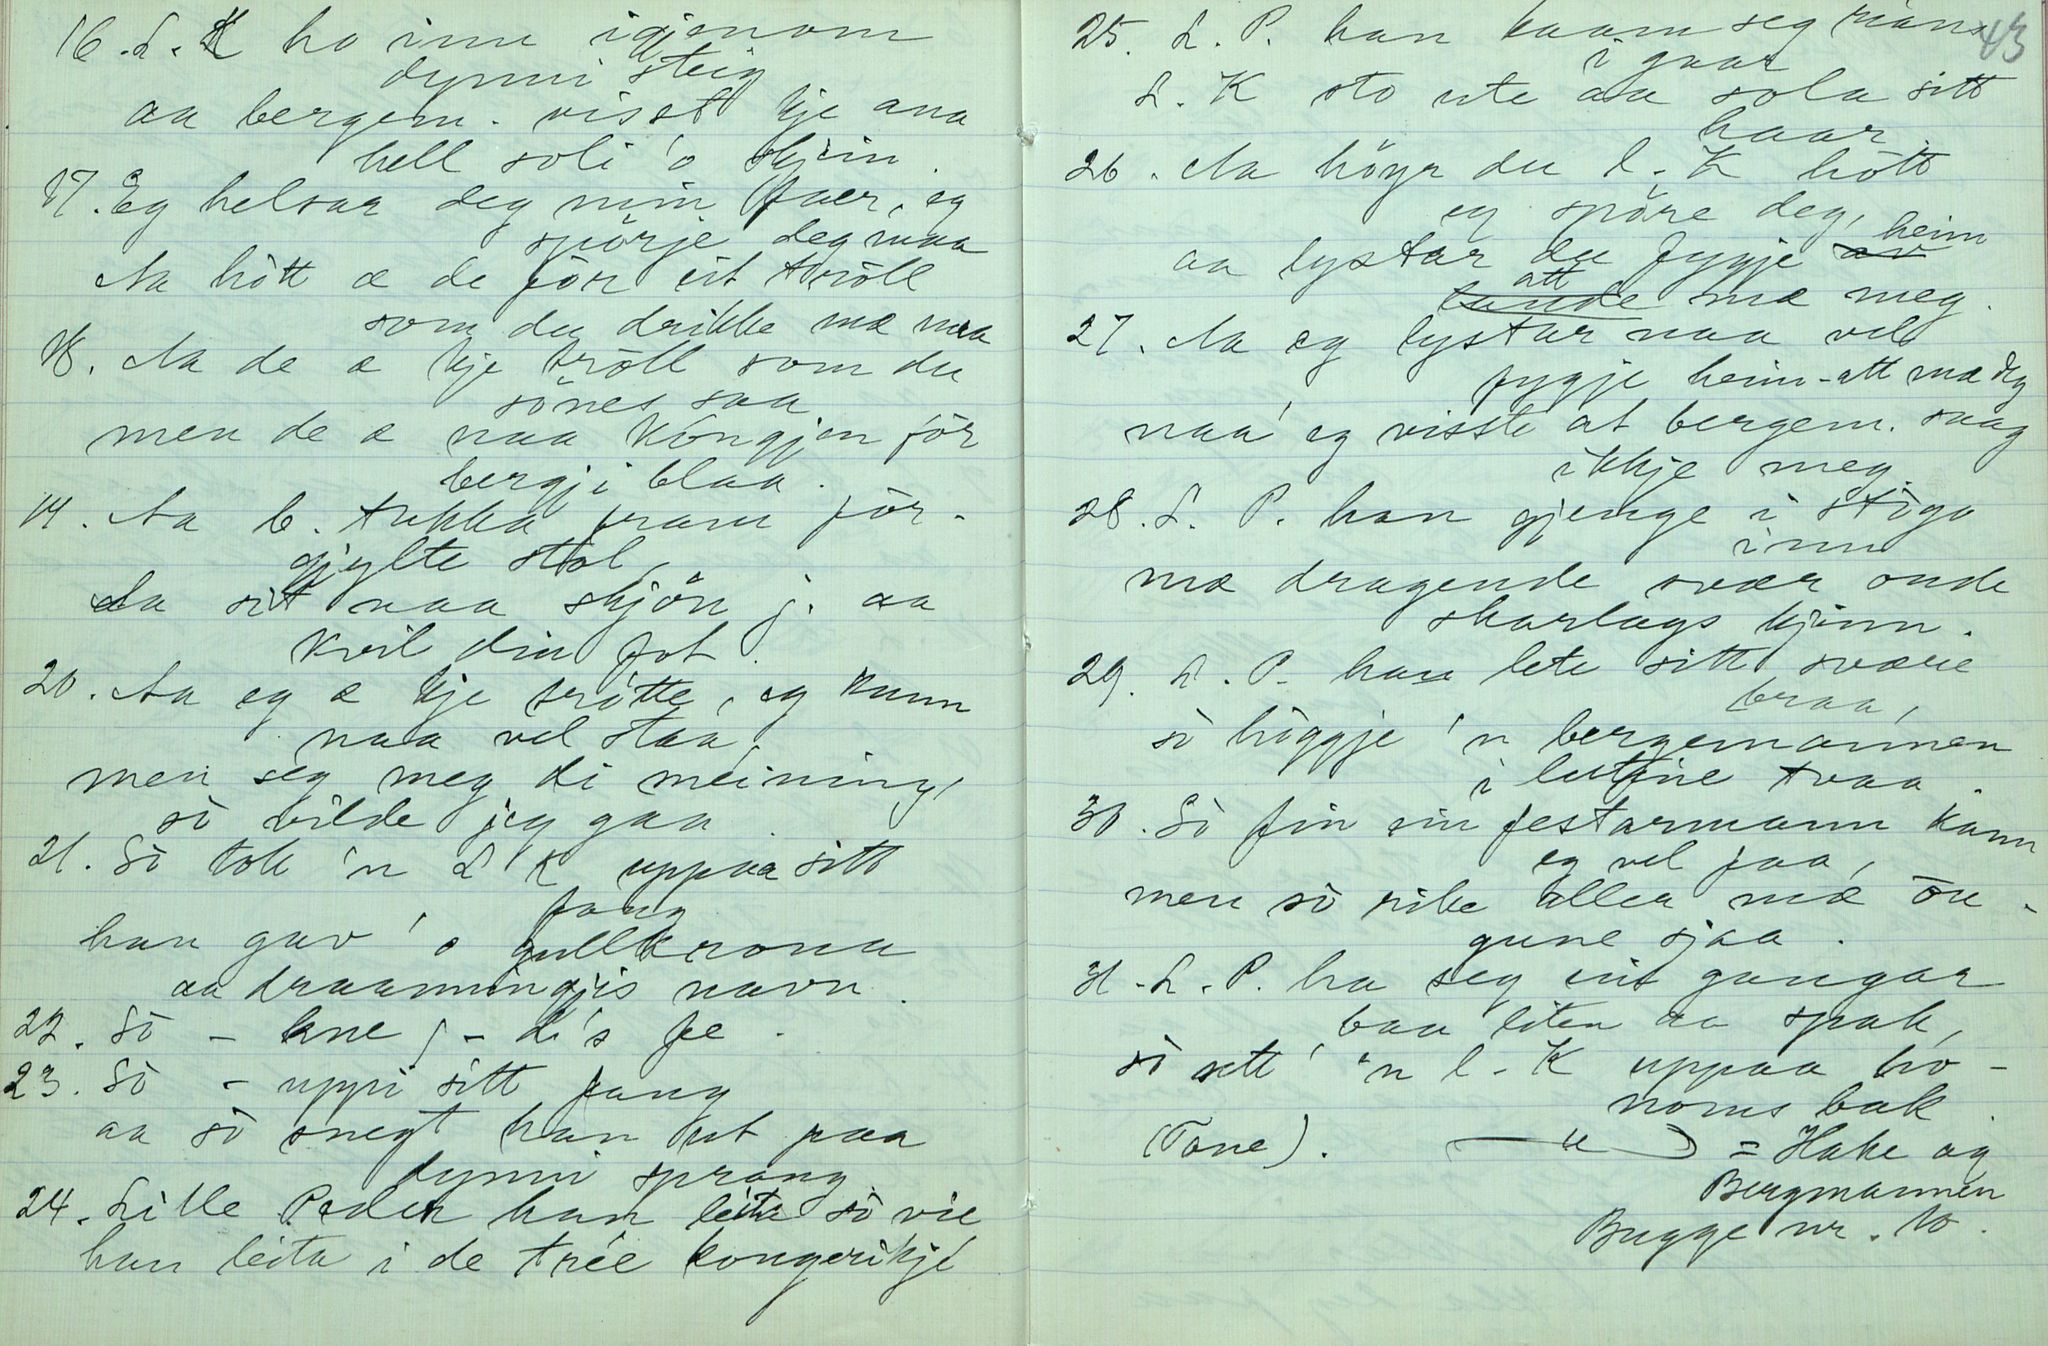 16. L. K ho inn igjenom
dynni steig
aa bergem. visst kje ana
hell soli 'o skjein.
17. Eg helsar deg min faer, eg
spörje deg maa
Aa hött æ de för eit tröll
som du drikke mæ maa
18. Aa de æ kje tröll som du
sönes saa
men de æ naa kongjen för
bergji blaa.
19. Aa b. trukka fram för-
gjylte stol,
Aa sit naa skjön j. aa
kvil din fot.
20. Aa eg æ kje trötte, eg kunn
naa vel staa,
men seg meg di meining,
sö vilde jeg gaa
21. Sö tok 'n L K uppaa sitt
fang
han gav 'o gullkrona
aa draanningjis navn.
22. Sö – kne j – di's fe.
23. Sö – uppi sitt fang
aa sö snegt han ut paa
dynni sprang
24. Lille Peder han leita sö vie
han leita i de trée kongerikje
43
25. L. P. han kaam seg
i gaar
L. K sto ute aa sola sitt
haar.
26. Aa höyr du l. K hött
eg spöre deg,
aa lystar du fygje av heim
lande att mæ meg.
27. Aa eg lystar naa vel
fygje heim-att mæ deg
naa' eg visste at bergem. saag
ikkje meg.
28. L. P. han gjenge i stógo
inn
mæ dragende svær onde
skarlags kjinn.
29. L. P. han lete sitt svære
braa,
sö höggje 'n bergemannen
i lutine tvaa.
30. Sö fin ein festarmann kann
eg vel faa,
men sö rike aller mæ öu-
gune sjaa.
31. L. P. ha seg ein gangar
baa liten aa spak,
sö sett' 'n l. K uppaa ho-
noms bak.
(Tone). — " — = Hake og
Bergmannen
Bugge nr. 10.